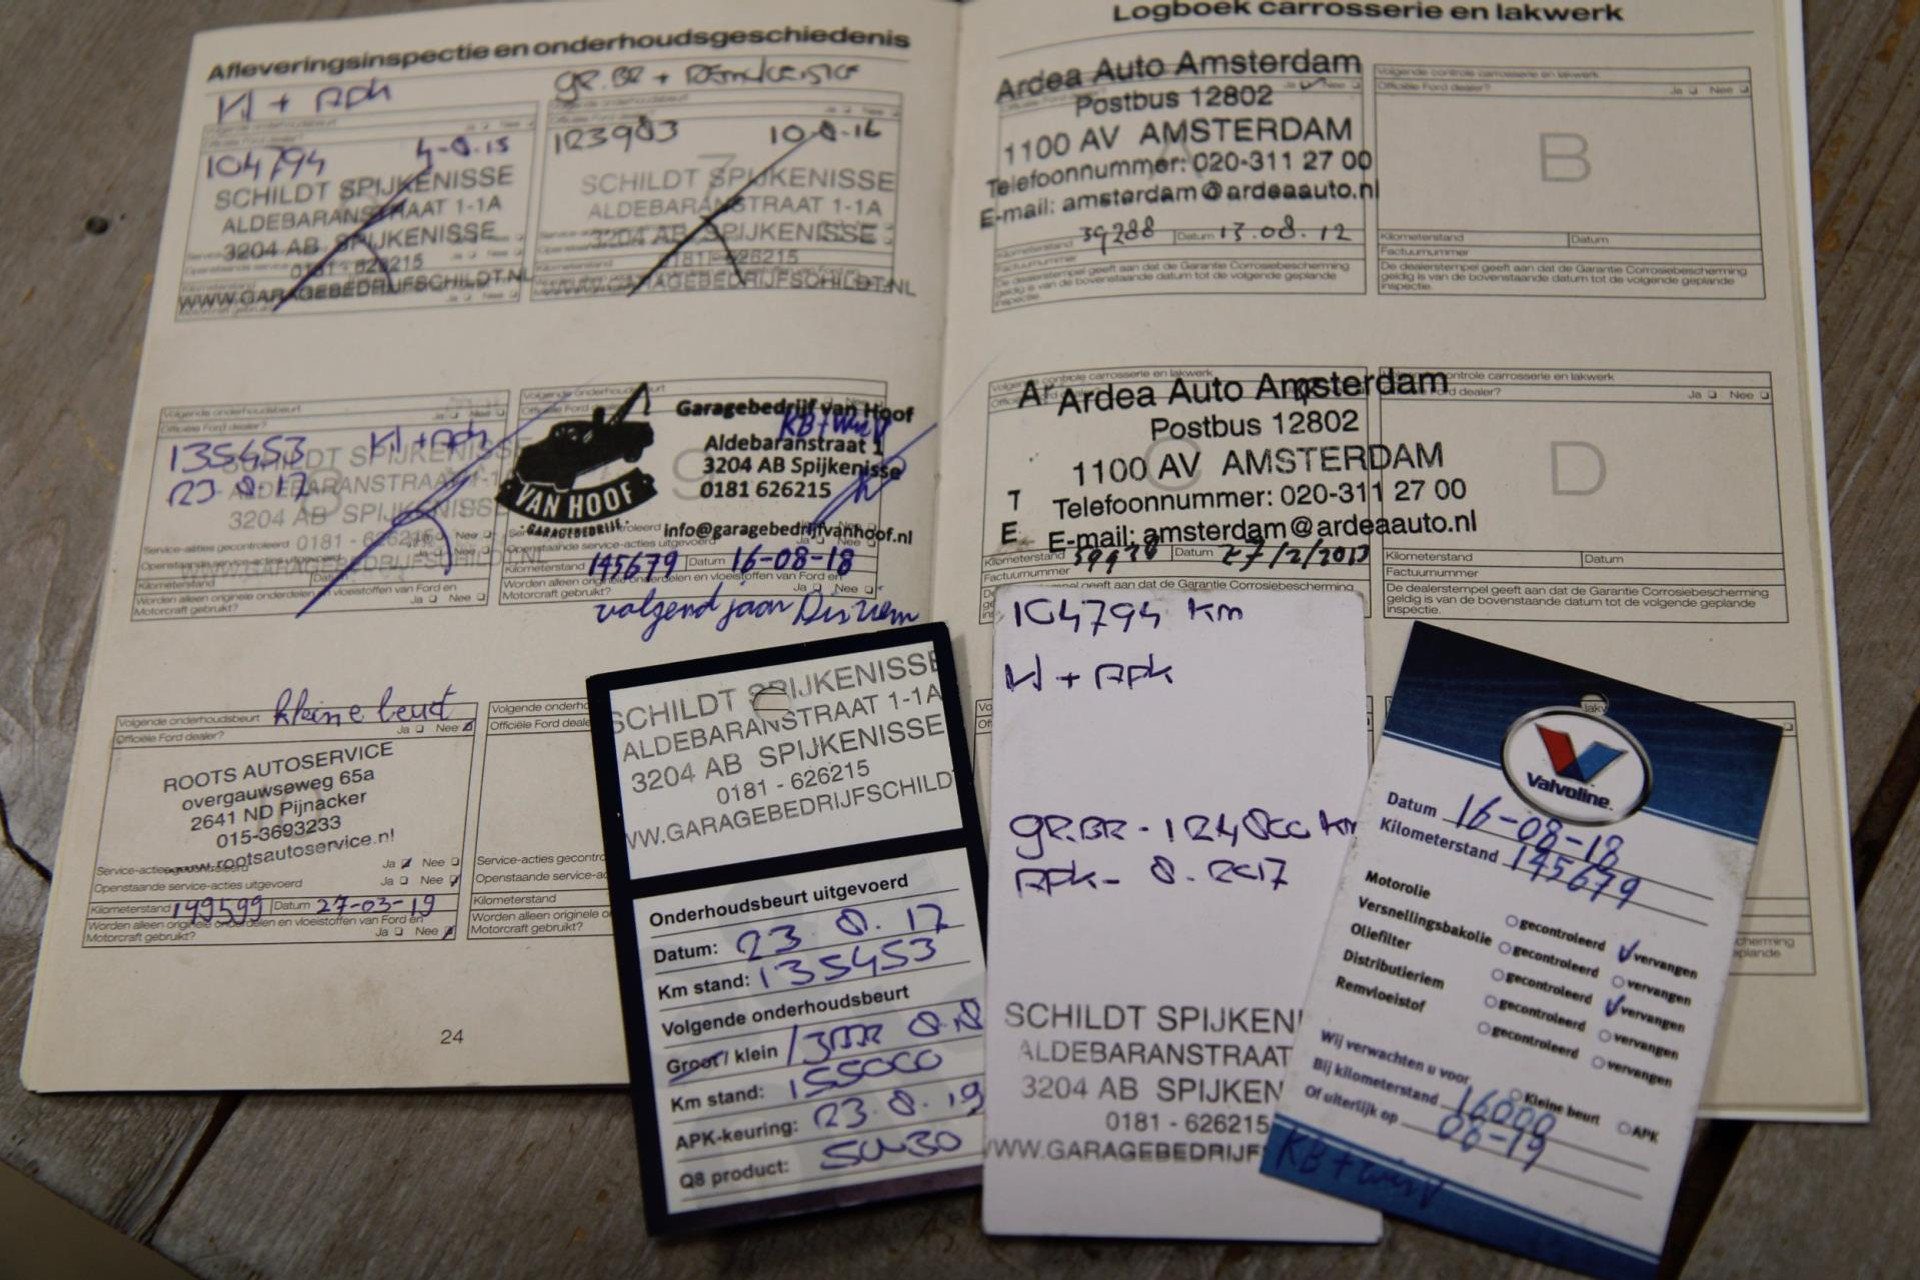 Afleveringsinspectie en onderhoudsgeschiedenis
Kl + APK
Volgende onderhoudsbeurt
Officiële Ford dealer? Ja Nee
104794 4-8.15
SCHILDT SPIJKENISSE
ALDEBARANSTRAAT 1-1A
3204 AB SPIJKENISSE
0181 - 626215
WWW.GARAGEBEDRIJFSCHILDT.NL
Motorcraft gebruikt? Ja Nee
gR.BR +
123983 10-8-16
7
SCHILDT SPIJKENISSE
ALDEBARANSTRAAT 1-1A
3204 AB SPIJKENISSE
0181 - 626215
WWW.GARAGEBEDRIJFSCHILDT.NL
Volgende onderhoudsbeurt
Officiële Ford dealer? Ja Nee
135453 Kl + APK
23.8.17
SCHILDT SPIJKENISSE
ALDEBARANSTRAAT 1-1A
3204 AB SPIJKENISSE
Service-acties gecontroleerd 0181 - 626215 Nee
Openstaande service-acties uitgevoerd Nee
WWW.GARAGEBEDRIJFSCHILDT.NL
Kilometerstand Datum
Worden alleen originele onderdelen en vloeistoffen van Ford en
Motorcraft gebruikt? Ja Nee
Volgende onderhoudsbeurt
Officiële Ford
9
VAN HOOF
GARAGEBEDRIJF
Garagebedrijf van Hoof
KB+
Aldebaranstraat 1
3204 AB Spijkenisse
0181 626215
info@garagebedrijfvanhoof.nl
Openstaande service-acties uitgevoerd
Kilometerstand 145679 Datum 16-08-18
Worden alleen originele onderdelen en vloeistoffen van Ford en
Motorcraft gebruikt? Ja Nee
volgend jaar Dis riem
Volgende onderhoudsbeurt kleine beurt
Officiële Ford dealer? Ja Nee
ROOTS AUTOSERVICE
overgauwseweg 65a
2641 ND Pijnacker
015-3693233
www.rootsautoservice.nl
Service-acties Ja Nee
Openstaande service-acties uitgevoerd Ja Nee
Kilometerstand 149599 Datum 27-03-19
Worden alleen originele onderdelen en vloeistoffen van Ford en
Motorcraft gebruikt? Ja Nee
Volgende onderho
Officiële Ford deale
Service-acties gecontro
Openstaande service-a
Kilometerstand
Worden alleen originele o
Motorcraft gebruikt?
24
Logboek carrosserie en lakwerk
Ardea Auto Amsterdam
Postbus 12802
1100 AV AMSTERDAM
Telefoonnummer: 020-311 27 00
E-mail: amsterdam@ardeaauto.nl
Kilometerstand 39288 Datum 13.08.12
Factuurnummer
De dealerstempel geeft aan dat de Garantie Corrosiebescherming
geldig is van de bovenstaande datum tot de volgende geplande
inspectie.
Volgende controle carrosserie en lakwerk
Officiële Ford dealer? Ja Nee
B
Kilometerstand Datum
Factuurnummer
De dealerstempel geeft aan dat de Garantie Corrosiebescherming
geldig is van de bovenstaande datum tot de volgende geplande
inspectie.
Volgende controle carrosserie en lakwerk
Ar Ardea Auto Amsterdam
Postbus 12802
C
1100 AV AMSTERDAM
T Telefoonnummer: 020-311 27 00
E- E-mail: amsterdam@ardeaauto.nl
Kilometerstand Datum 27/2/2013
Factuurnummer
geeft aan dat de Garantie Corrosiebescherming
controle carrosserie en lakwerk
dealer? Ja Nee
D
Kilometerstand Datum
Factuurnummer
De dealerstempel geeft aan dat de Garantie Corrosiebescherming
geldig is van de bovenstaande datum tot de volgende geplande
inspectie.
SCHILDT SPIJKENISSE
ALDEBARANSTRAAT 1-1A
3204 AB SPIJKENISSE
0181 - 626215
WW.GARAGEBEDRIJFSCHILD
Onderhoudsbeurt uitgevoerd
Datum: 23.8.17
Km stand: 135453
Volgende onderhoudsbeurt
Groot / klein 8.18
Km stand: 155000
APK-keuring: 23.8.19
Q8 product: 5W30
104794 Km
Kl + APK
gR.BR - 124800 Km
APK - 8.2017
SCHILDT SPIJKENI
ALDEBARANSTRAAT
3204 AB SPIJKEN
0181 - 626215
WWW.GARAGEBEDRIJF
Valvoline
Datum 16-08-18
Kilometerstand 145679
Motorolie gecontroleerd vervangen
Versnellingsbakolie gecontroleerd vervangen
Oliefilter gecontroleerd vervangen
Distributieriem gecontroleerd vervangen
Remvloeistof gecontroleerd vervangen
Wij verwachten u voor Kleine beurt APK
Bij kilometerstand 16000
Of uiterlijk op 08-19
KB +
cherming
eplande